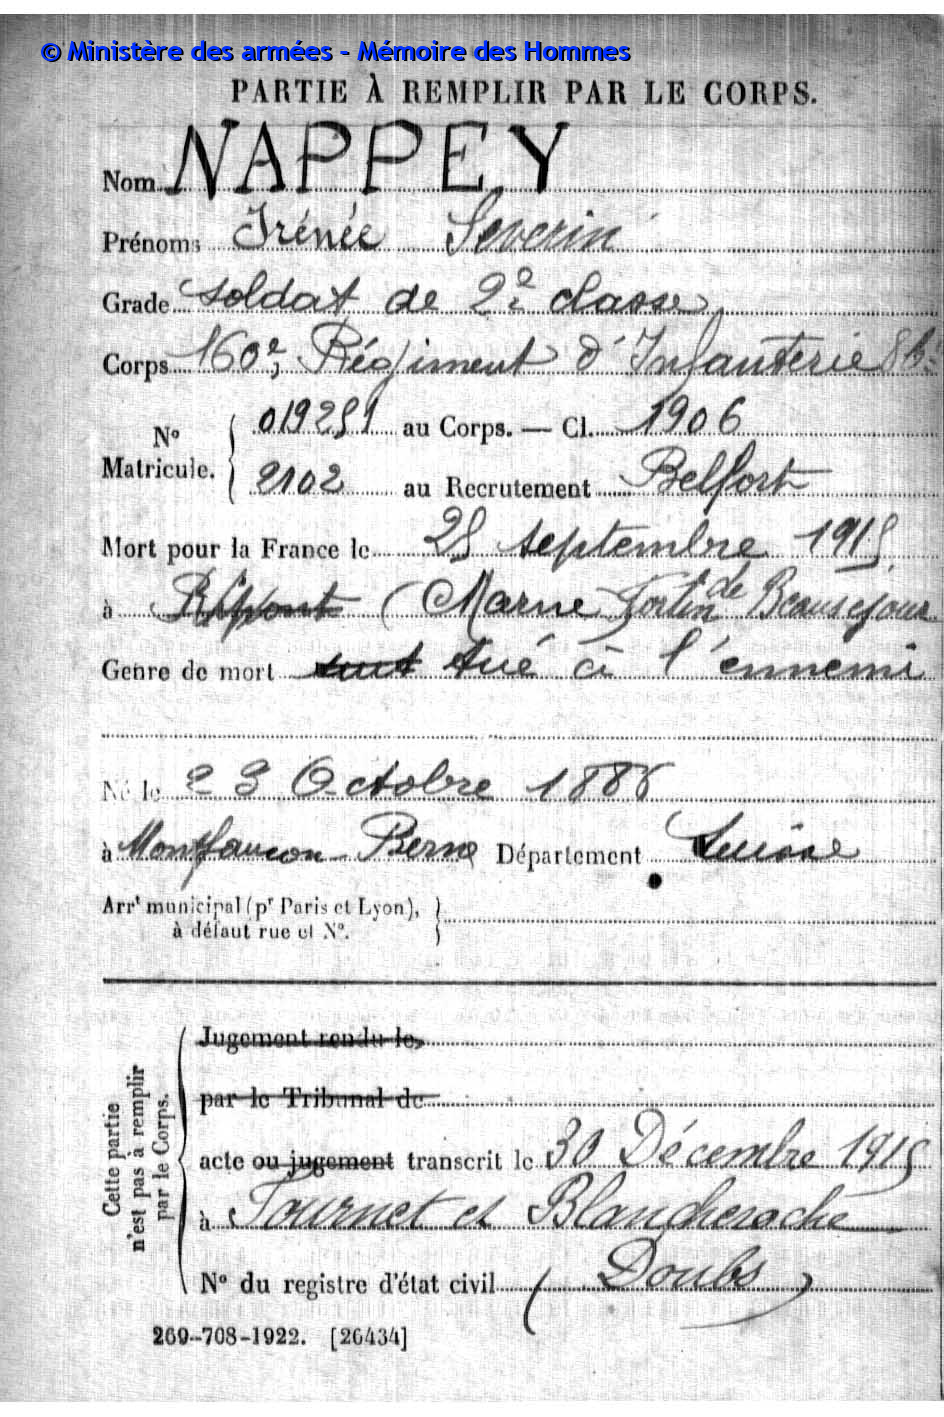 © Ministère des armées - Mémoire des Hommes
PARTIE À REMPLIR PAR LE CORPS.
Nom NAPPEY
Prénoms Irénée Severin
Grade soldat de 2e classe
Corps 160e Régiment d'Infanterie
No Matricule. 019251 au Corps. — Cl. 1906
2102 au Recrutement Belfort
Mort pour la France le 25 septembre 1915
à Ripont (Marne Fortin de Beauséjour
Genre de mort suit tué à l'ennemi
Né le 23 Octobre 1886
à Montfaucon Berne Département Suisse
Arrt municipal (pr Paris et Lyon),
à défaut rue et No.
Cette partie
n'est pas à remplir
par le Corps.
Jugement rendu le
par le Tribunal de
acte ou jugement transcrit le 30 Décembre 1915
à Fournet et Blancheroche
No du registre d'état civil (Doubs)
269-708-1922. [26434]